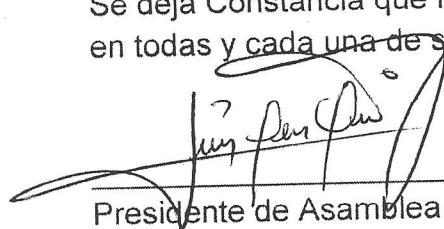 Se deja Constancia que
en todas y cada una de
Presidente de Asamblea